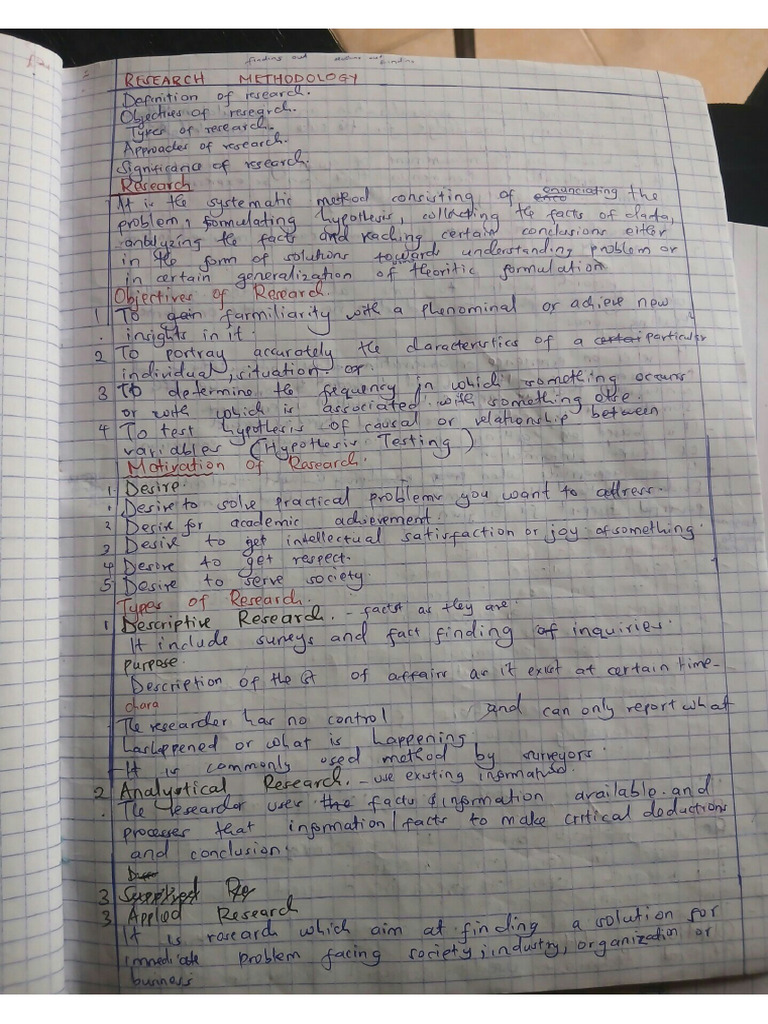 finding out
RESEARCH METHODOLOGY
Definition of research.
Objectives of research.
Types of research.
Approaches of research.
Significance of research.
Research
It is the systematic method consisting of enunciating the
problem, formulating hypothesis, collecting the facts of data,
analyzing the facts and reaching certain conclusions either
in the form of solutions towards understanding problem or
in certain generalization of theoritic formulation
Objectives of Research.
1 To gain farmiliarity with a phenominal or achieve new
insights in it.
2 To portray accurately the characteristics of a certain particular
individual, situation or
3 To determine the frequency in which something occurs
or with which is associated with something else.
4 To test hypothesis of causal or relationship between
variables (Hypothesis Testing)
Motivation of Research.
1. Desire.
1. Desire to solve practical problems you want to address.
2 Desire for academic achievement.
3 Desire to get intellectual satisfaction or joy of something.
4 Desire to get respect.
5 Desire to serve society.
Types of Research.
1 Descriptive Research. - facts as they are.
It include surveys and fact finding of inquiries.
purpose.
Description of the st of affairs as it exist at certain time-
chara
The researcher has no control and can only report what
has happened or what is happening
- It is commonly used method by surveyors.
2 Analystical Research. - use existing information.
. The researcher uses the facts & information available and
processes that information/facts to make critical deductions
and conclusion.
3
3 Applied Research
It is research which aim at finding a solution for
immediate problem facing society, industry, organization or
business